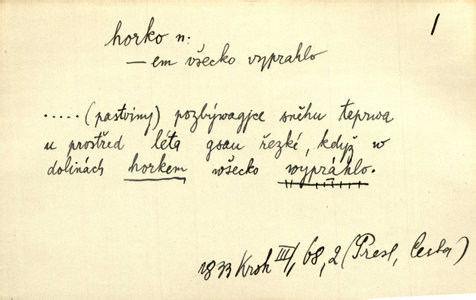 1
horko n:
— em všecko vyprahlo
..... (pastviny) pozbýwagjce sněhu teprwa
u prostřed léta gsau řezké, když w
dolinách horkem wšecko wypráhlo.
1833 Krok III/, 68, 2 (Presl, Cesta)